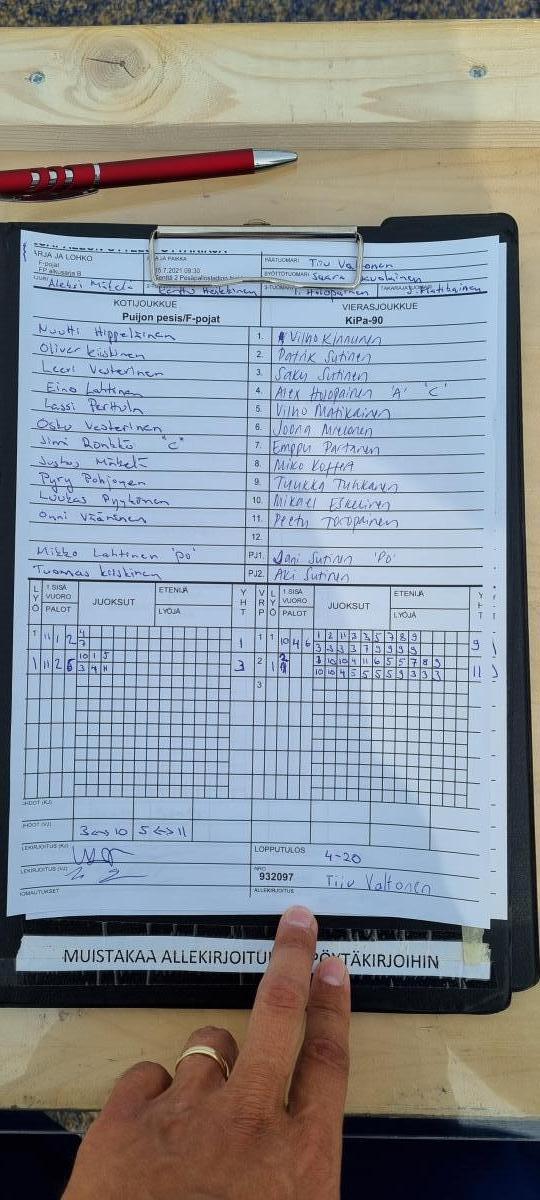 ARJA JA LOHKO
F-pojat
FP alkusarja B
AJA PAIKKA
2021 09:30
PÄÄTUOMARI Tiiu Va onen
SYÖTTÖTUOMARI Saara
Aleksi Mäkelä Perttu Heikkinen I. Holopainen
KOTIJOUKKUE VIERASJOUKKUE
Puijon pesis/F-pojat KiPa-90
Nuutti Hippeläinen 1. Vilho Kinnunen
Oliver Kiiskinen 2. Patrik Sutinen
Leevi Vesterinen 3. Saku Sutinen
Eino Lahtinen 4. Alex Holopainen 'A' 'C'
Lassi Perttula 5. Vilho Matikainen
Osku Vesterinen 6. Joona
Jimi Ronkkö "C" 7. Emppu Partanen
Justus Mäkelä 8. Miko
Pyry Pohjonen 9. Tuukka Tuhkanen
Luukas Pyykönen 10. Mikael Eskelinen
Onni Väänänen 11. Peetu Toropainen
12.
Mikko Lahtinen 'po' PJ1. Jani Sutinen 'Po'
Tuomas Kiiskinen PJ2. Aki Sutinen
LYÖ 1.SISÄ VUORO PALOT JUOKSUT ETENIJÄ LYÖJÄ YHT VRP LYÖ 1.SISÄ VUORO PALOT JUOKSUT ETENIJÄ LYÖJÄ YHT
1 11 1 2 1 1 1 10 4 6 1 2 11 3 3 5 7 8 9 9
3 3 3 7 9 9 9 9
1 11 2 10 1 5 3 2 1 10 10 4 11 6 5 5 7 8 9 11
3 4 11 10 10 4 5 5 5 5 9 3 3 3
3
HDOT (KJ)
HDOT (VJ) 3 ↔ 10 5 ↔ 11
LEKIRJOITUS (KJ) LOPPUTULOS 4-20
LEKIRJOITUS (VJ) NRO 932097 Tiiu Valtonen
OMAUTUKSET ALLEKIRJOITUS
MUISTAKAA ALLEKIRJOITU PÖYTÄKIRJOIHIN